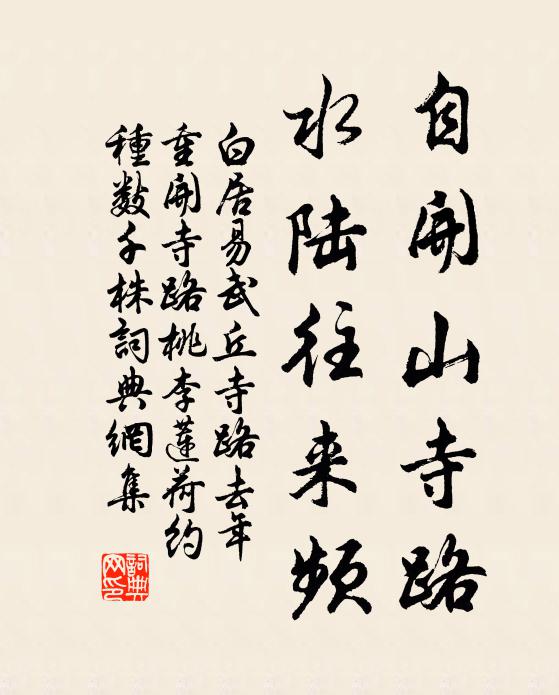 自開山寺路
水陆往来頻
白居易武丘寺路去年
重開寺路桃李蓮荷约
種数千株詞典網集
詞典
网印